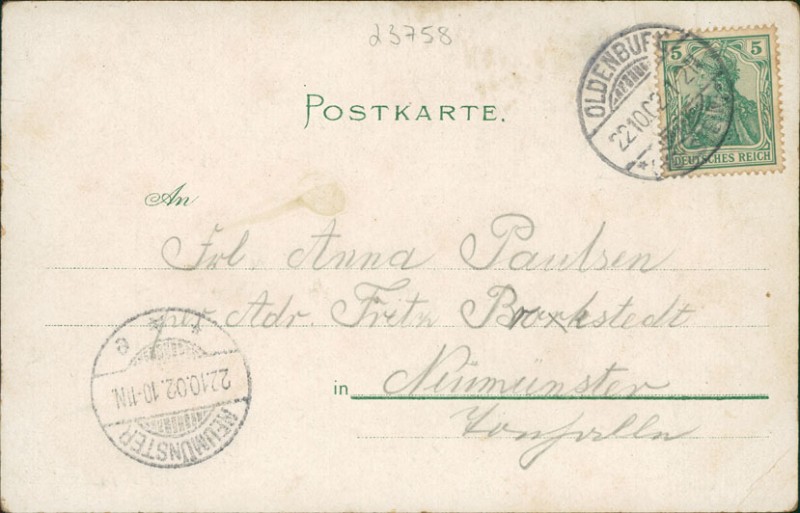 23758
POSTKARTE.
5 5
DEUTSCHES REICH
OLDENBURG
22.10.02.
An
Frl. Anna Paulsen
per Adr. Fritz Brokstedt
in Neumünster
Tonhalle
NEUMÜNSTER
22.10.02. 10-11N.
* * e